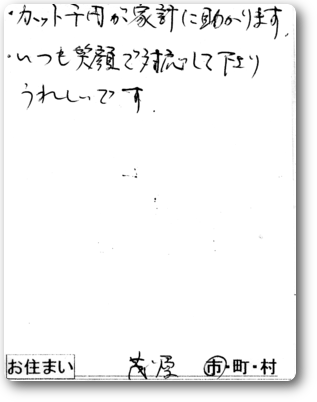 ・カット千円が家計に助かります。
・いつも笑顔で対応して下さり
うれしいです.
お住まい 茂原 市・町・村